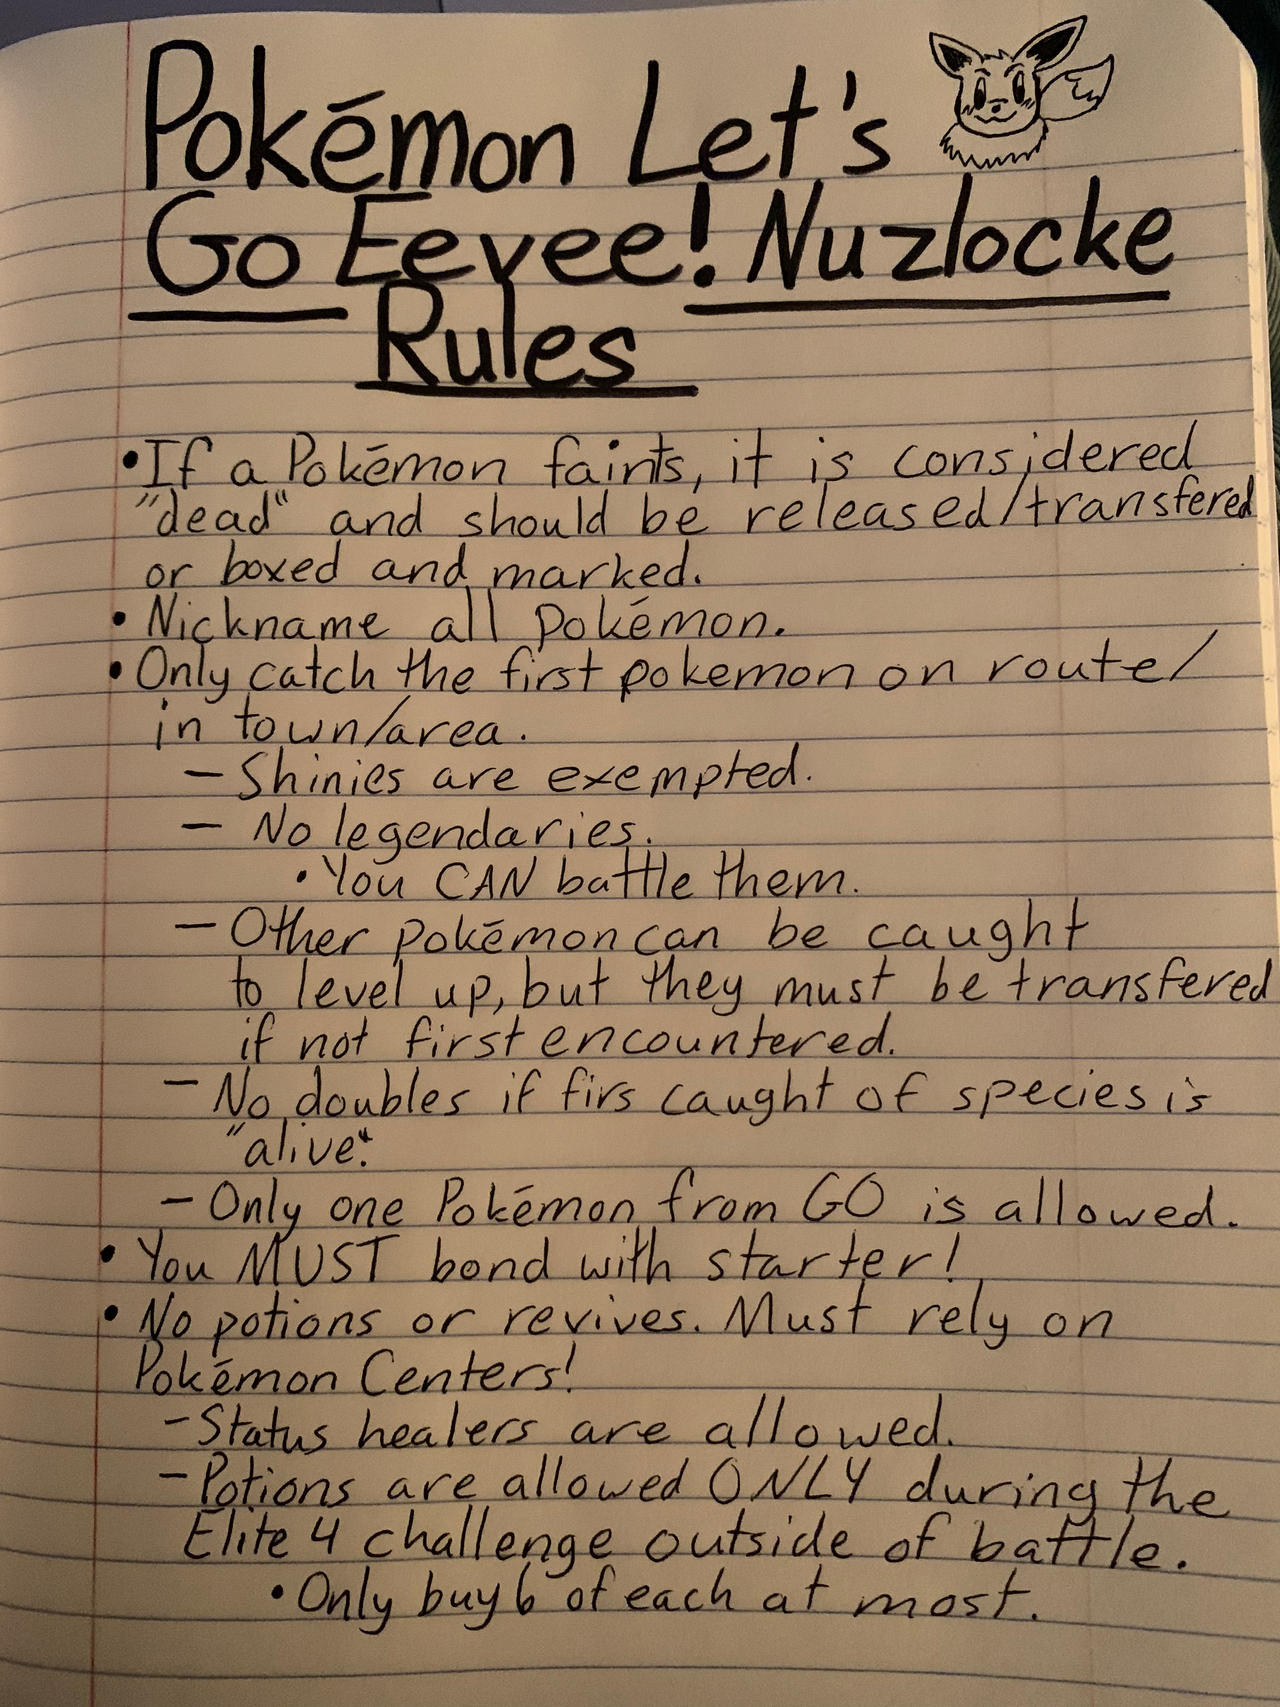 Pokémon Let's
Go Eevee! Nuzlocke
Rules
• If a Pokémon faints, it is considered
"dead" and should be released/transfered
or boxed and marked.
• Nickname all pokémon.
• Only catch the first pokemon on route/
in town/area.
- Shinies are exempted.
- No legendaries.
• You CAN battle them.
- Other pokémon can be caught
to level up, but they must be transfered
if not first encountered.
- No doubles if firs caught of species is
"alive".
- Only one Pokémon from GO is allowed.
• You MUST bond with starter!
• No potions or revives. Must rely on
Pokémon Centers!
- Status healers are allowed.
- Potions are allowed ONLY during the
Elite 4 challenge outside of battle.
• Only buy 6 of each at most.